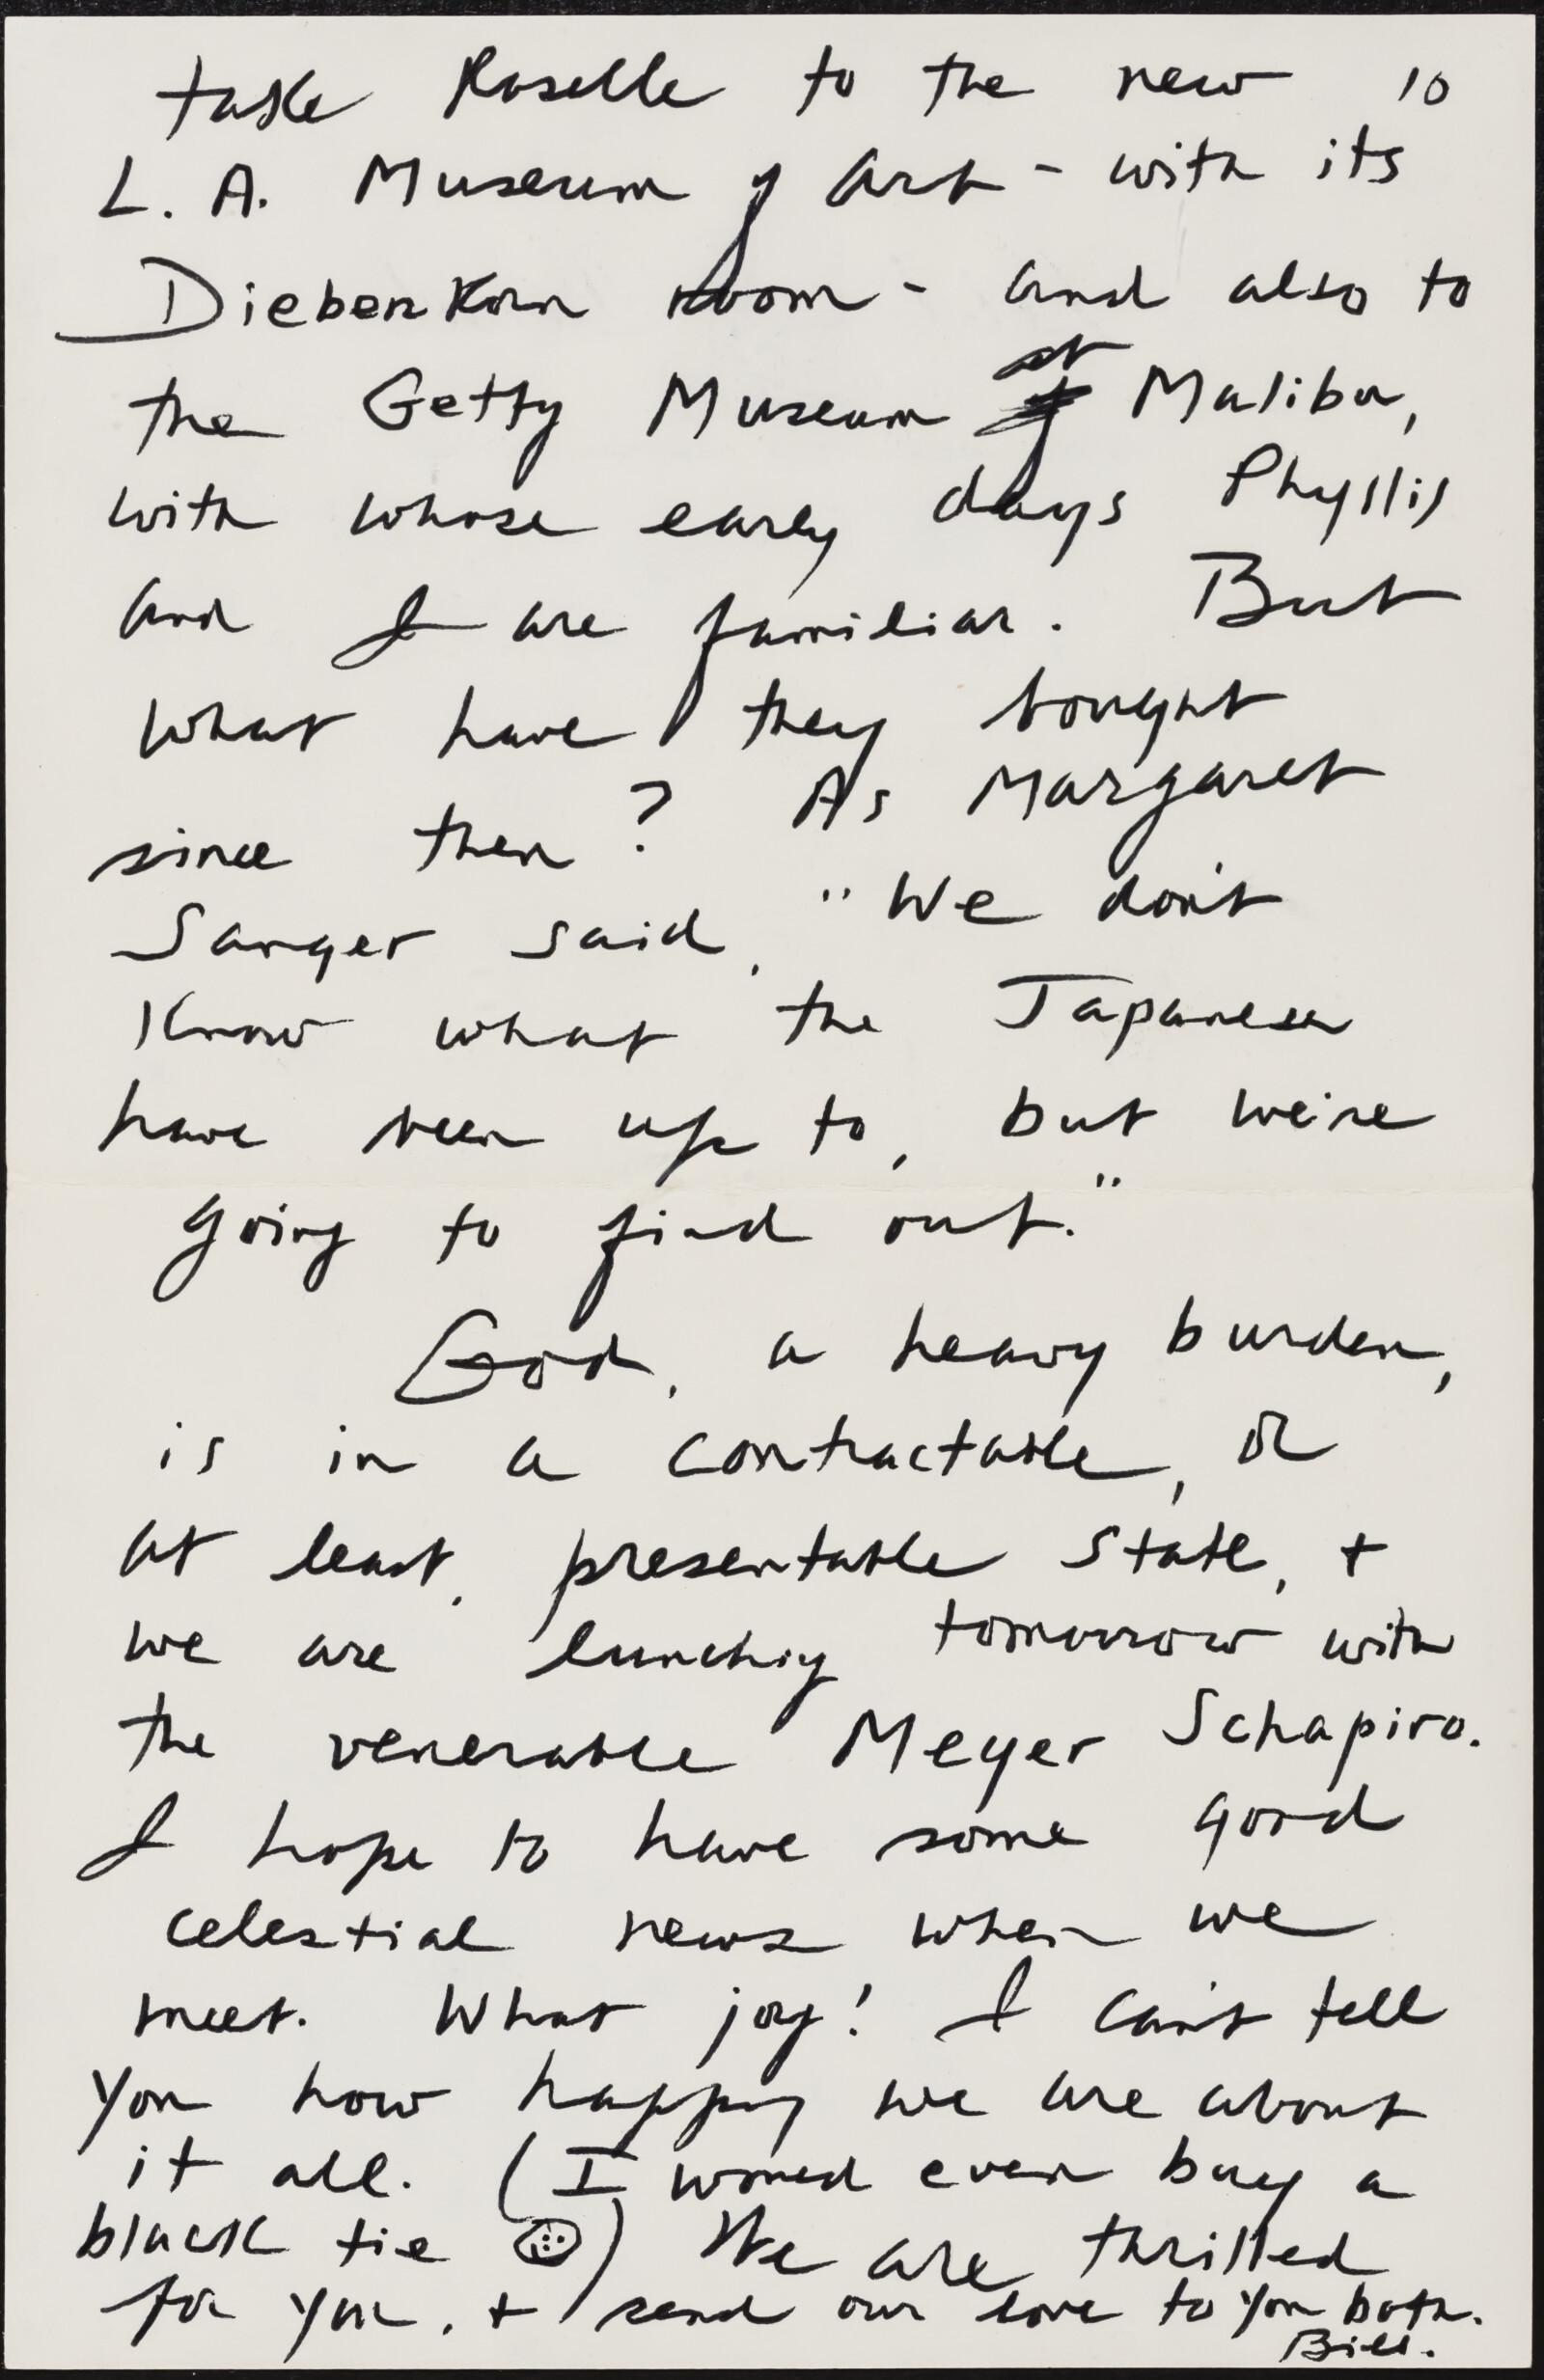 take Roselle to the new 10
L. A. Museum of Art - with its
Diebenkorn room - and also to
the Getty Museum at Malibu,
with whose early days Phyllis
and I are familiar. But
what have they bought
since then? As Margaret
Sanger said, "We don't
know what the Japanese
have been up to, but we're
going to find out."
God, a heavy burden,
is in a contractable, or
at least, presentable state, +
we are lunching tomorrow with
the venerable Meyer Schapiro.
I hope to have some good
celestial news when we
meet. What joy! I can't tell
you how happy we are about
it all. (I would even buy a
black tie ☺) We are thrilled
for you, + send our love to you both.
Bill.